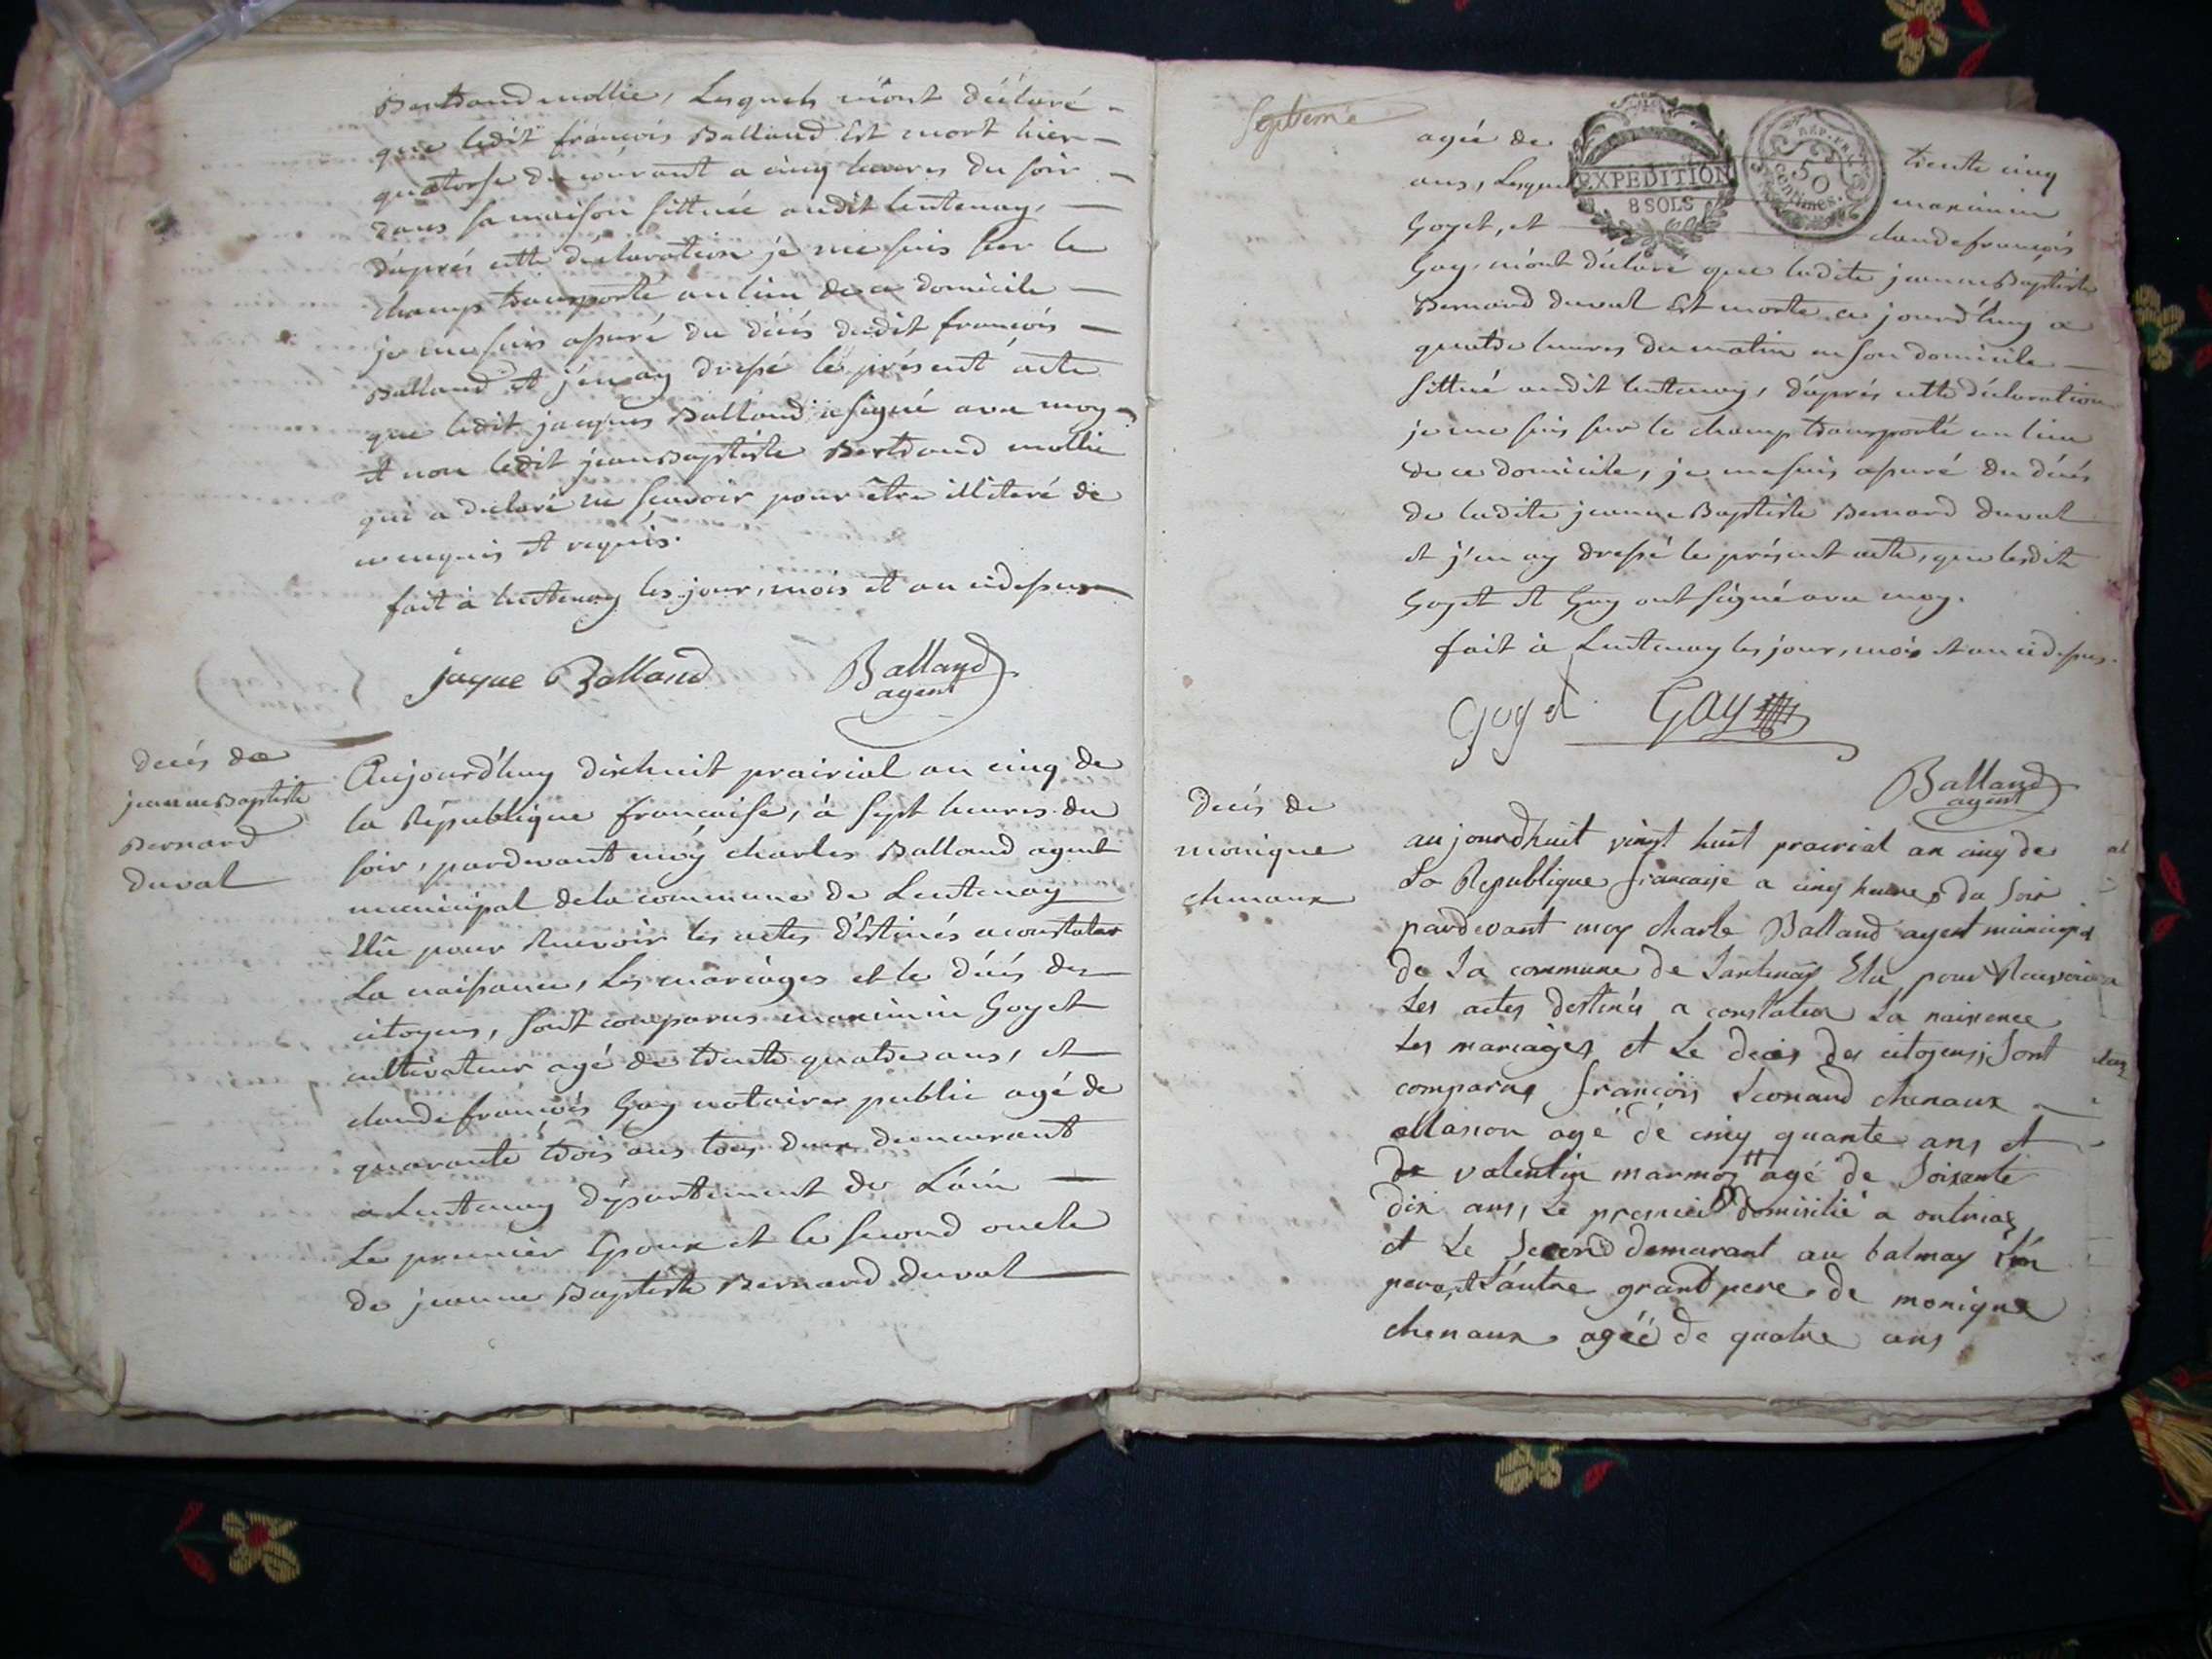 Bertrand mollie, Lesquels m'ont déclaré
que ledit françois Balland Est mort hier
quatorse du courant a cinq heures du soir
dans sa maison sittuée audit lentenay,
d'aprés cette declaration je me suis sur le
champ transporté au lieu de ce domicile
je me suis assuré du décés dudit françois
Balland et j'en ay dressé le présent acte
que ledit jacques Balland a signé avec moy
et non ledit jean Baptiste Bertrand mollie
qui a déclaré ne sçavoir pour être illiteré de
ce enquis et requis.
fait à lentenay les jour, mois et an cidessus
jaque Balland
Balland
agent
decés de
jeanne Baptiste
Bernard
duval
Aujourd'huy dixhuit prairial an cinq de
la République française, à sept heures du
soir, pardevant moy charles Balland agent
municipal de la commune de Lentenay
Elû pour Recevoir les actes d'Estinés a constater
La naissance, Les mariàges et le décés des
citoyens, sont comparus maximin Goyet
cultivateur agé de trente quatre ans, et
claude françois Gay notaire public agé de
quarante trois ans tous deux demeurant
a Lentenay département de L'ain
Le premier Epoux et le second oncle
de jeanne Baptiste Bernard duval
Septieme
agée de trente cinq
EXPEDITION
8 SOLS
REP. FRA.
50
centimes.
ans, Lesquels maximin
Goyet, et claude françois
Gay, m'ont déclaré que ladite jeanne Baptiste
Bernard duval Est morte ce jourd'huy a
quatre heures du matin en son domicile
sittué audit lentenay, d'aprés cette déclaration
je me suis sur le champ transporté au lieu
de ce domicile, je me suis assuré du décés
de ladite jeanne Baptiste Bernard duval
et j'en ay dressé le présent acte, que lesdit
Goyet et Gay ont signé avec moy.
fait à Lentenay les jour, mois et an cidessus.
Goyet Gay
Balland
agent
decés de
monique
chenaux
aujourdhuit vingt huit prairial an cinq de
La Republique francaise a cinq heures du soir
pardevant moy charle Balland agent municipal
de La commune de Lantenay Elu pour Recevoir
Les actes destinés a constater La naissence
Les mariages et Le deces des citoyens, sont
comparus françois Leonard chenaux
Masson agé de cinq quante ans et
de valentin marmot agé de soixante
dix ans, Le premier domicilié a outriaz
et Le second demurant au balmay L'un
pere et L'autre grand pere de monique
chenaux agéé de quatre ans